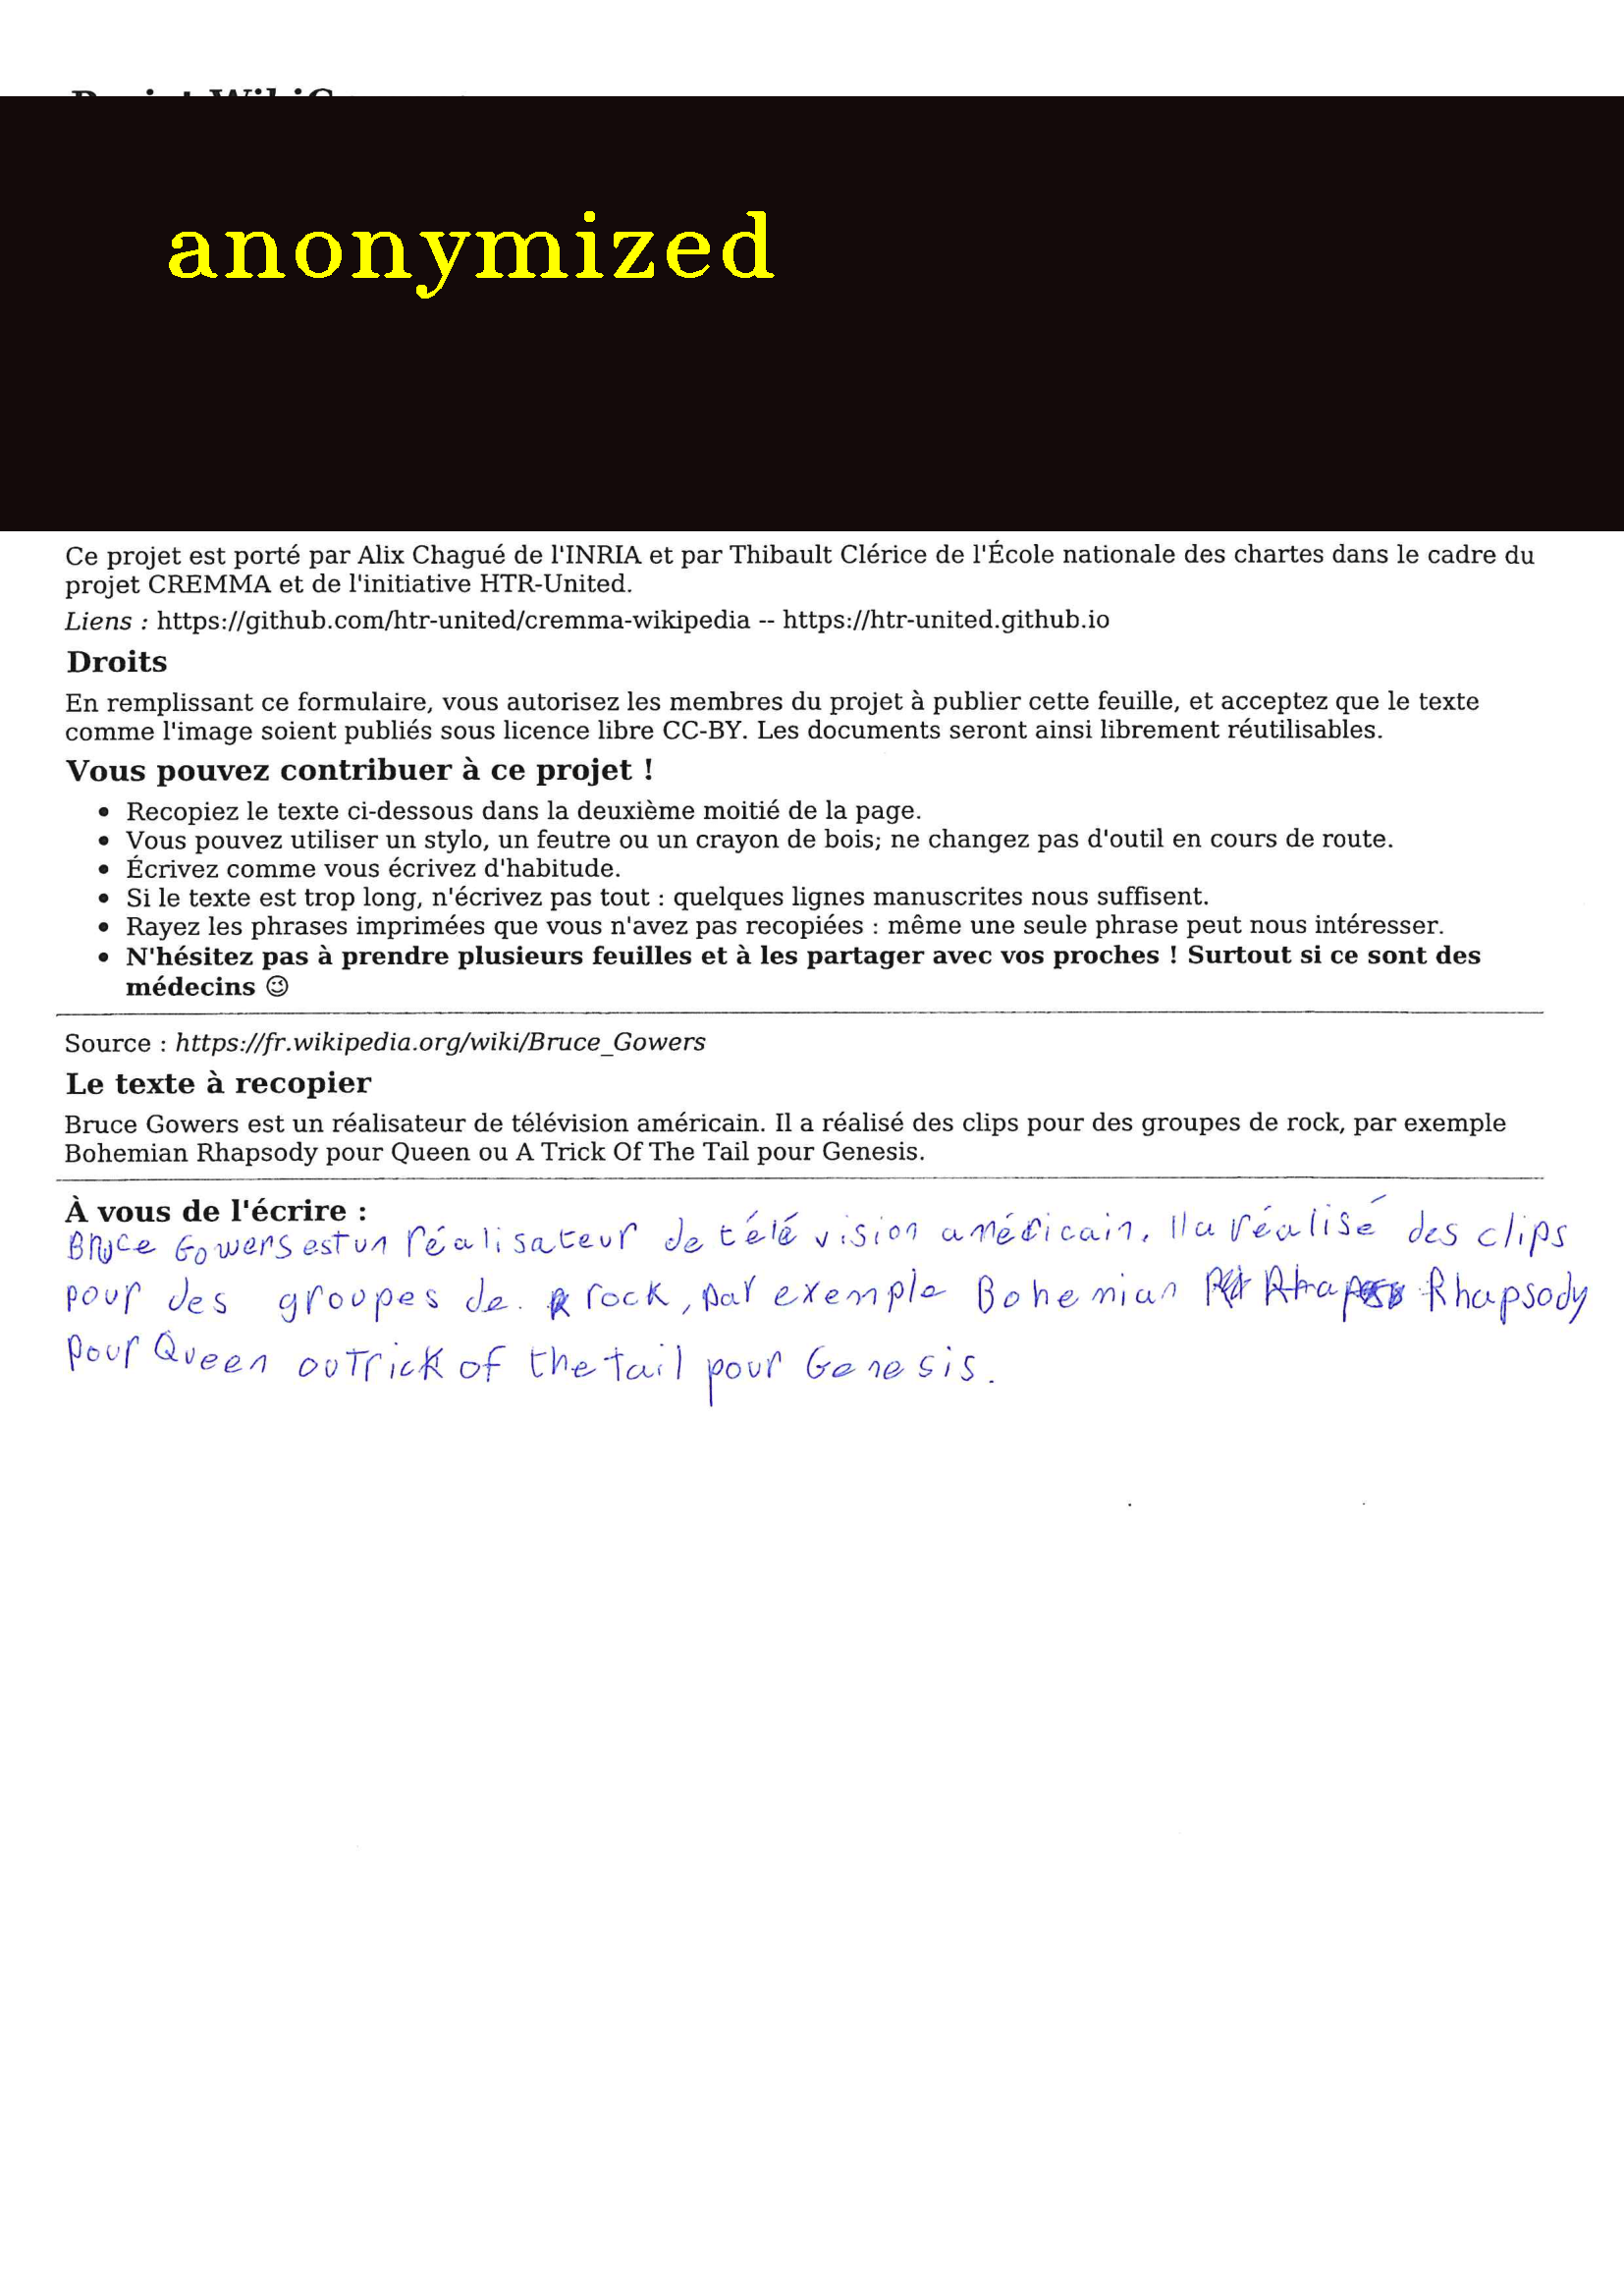 anonymized
Ce projet est porté par Alix Chagué de l'INRIA et par Thibault Clérice de l'École nationale des chartes dans le cadre du
projet CREMMA et de l'initiative HTR-United.
Liens : https://github.com/htr-united/cremma-wikipedia -- https://htr-united.github.io
Droits
En remplissant ce formulaire, vous autorisez les membres du projet à publier cette feuille, et acceptez que le texte
comme l'image soient publiés sous licence libre CC-BY. Les documents seront ainsi librement réutilisables.
Vous pouvez contribuer à ce projet !
• Recopiez le texte ci-dessous dans la deuxième moitié de la page.
• Vous pouvez utiliser un stylo, un feutre ou un crayon de bois; ne changez pas d'outil en cours de route.
• Écrivez comme vous écrivez d'habitude.
• Si le texte est trop long, n'écrivez pas tout : quelques lignes manuscrites nous suffisent.
• Rayez les phrases imprimées que vous n'avez pas recopiées : même une seule phrase peut nous intéresser.
• N'hésitez pas à prendre plusieurs feuilles et à les partager avec vos proches ! Surtout si ce sont des
médecins 😉
Source : https://fr.wikipedia.org/wiki/Bruce_Gowers
Le texte à recopier
Bruce Gowers est un réalisateur de télévision américain. Il a réalisé des clips pour des groupes de rock, par exemple
Bohemian Rhapsody pour Queen ou A Trick Of The Tail pour Genesis.
À vous de l'écrire :
Bruce Gowers est un réalisateur de télévision américain. Il a réalisé des clips
pour des groupes de. rock, par exemple Bohemian Rhapsody
pour Queen ou Trick of the tail pour Genesis.